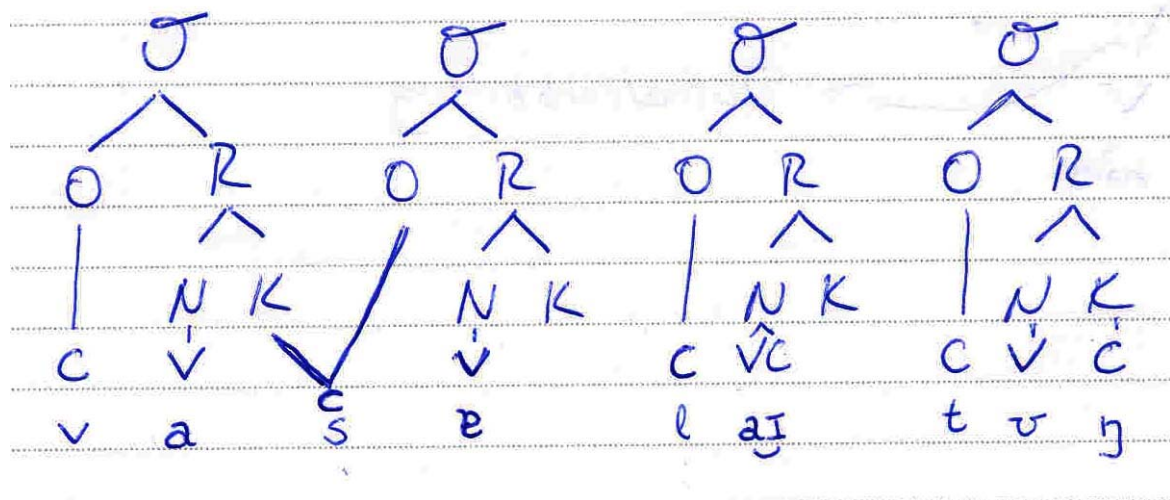 σ σ σ σ
O R O R O R O R
N K N K N K N K
C V C V C VC C V C
v a s ɐ l aɪ̯ t ʊ ŋ